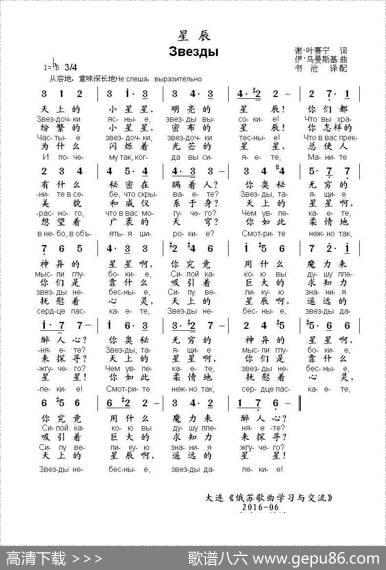 星辰
Звезды
谢·叶赛宁 词
伊·乌曼斯基 曲
书沧 译配
1=♭B 3/4
从容地，意味深长地Не спеша, выразительно
天上的 小星星， 明亮的 星辰！ 你们都
Звездочки ясные, звезды высокие! Что вы хра-
纷繁的 小星星， 密布的 星辰！ 你怎样的
Частые звездочки, звездочки тесные! Что в вас пре-
为什么 闪烁着 光芒的 星星， 总使人
И почему так, когда вы сияете, Маните
有什么 秘密在 瞒着人？ 你奥秘 无穷的
ните в себе, что скрываете? Звезды, таящие
美貌 和威仪 系于身？ 天上的 星星啊，
красного, что в вас могучего? Чем увлекаете,
想望着 广袤的 天穹？ 你如此 柔情地
в небо, в объятья широкие? Смотрите нежно так,
神异的 星星啊， 你究竟 用什么 魔力来
мысли глубокие, Силой какою вы душу пле-
你们是 靠什么 吸引着 巨大的 求知力
звезды небесные, Силу великую знания
抚慰着 心灵， 天上的 星辰啊， 遥远的
сердце ласкаете, Звезды небесные, звезды да-
醉人心？ 你奥秘 无穷的 神异的 星星啊，
няете? Звезды, таящие мысли глубокие,
来探寻？ 天上的 星星啊， 你们是 靠什么
жгучего? Чем увлекаете, звезды небесные,
星星！ 你如此 柔情地 抚慰着 心灵，
лекие! Смотрите нежно так, сердце ласкаете,
你究竟 用什么 魔力来 醉人心？
Силой какою вы душу пленяете?
吸引着 巨大的 求知力 来探寻？
Силу великую знания жгучего?
天上的 星辰啊， 遥远的 星星！
Звезды небесные, звезды далекие!
大连《俄苏歌曲学习与交流》
2016-06
高清下载 >>>
歌谱八六 www.gepu86.com